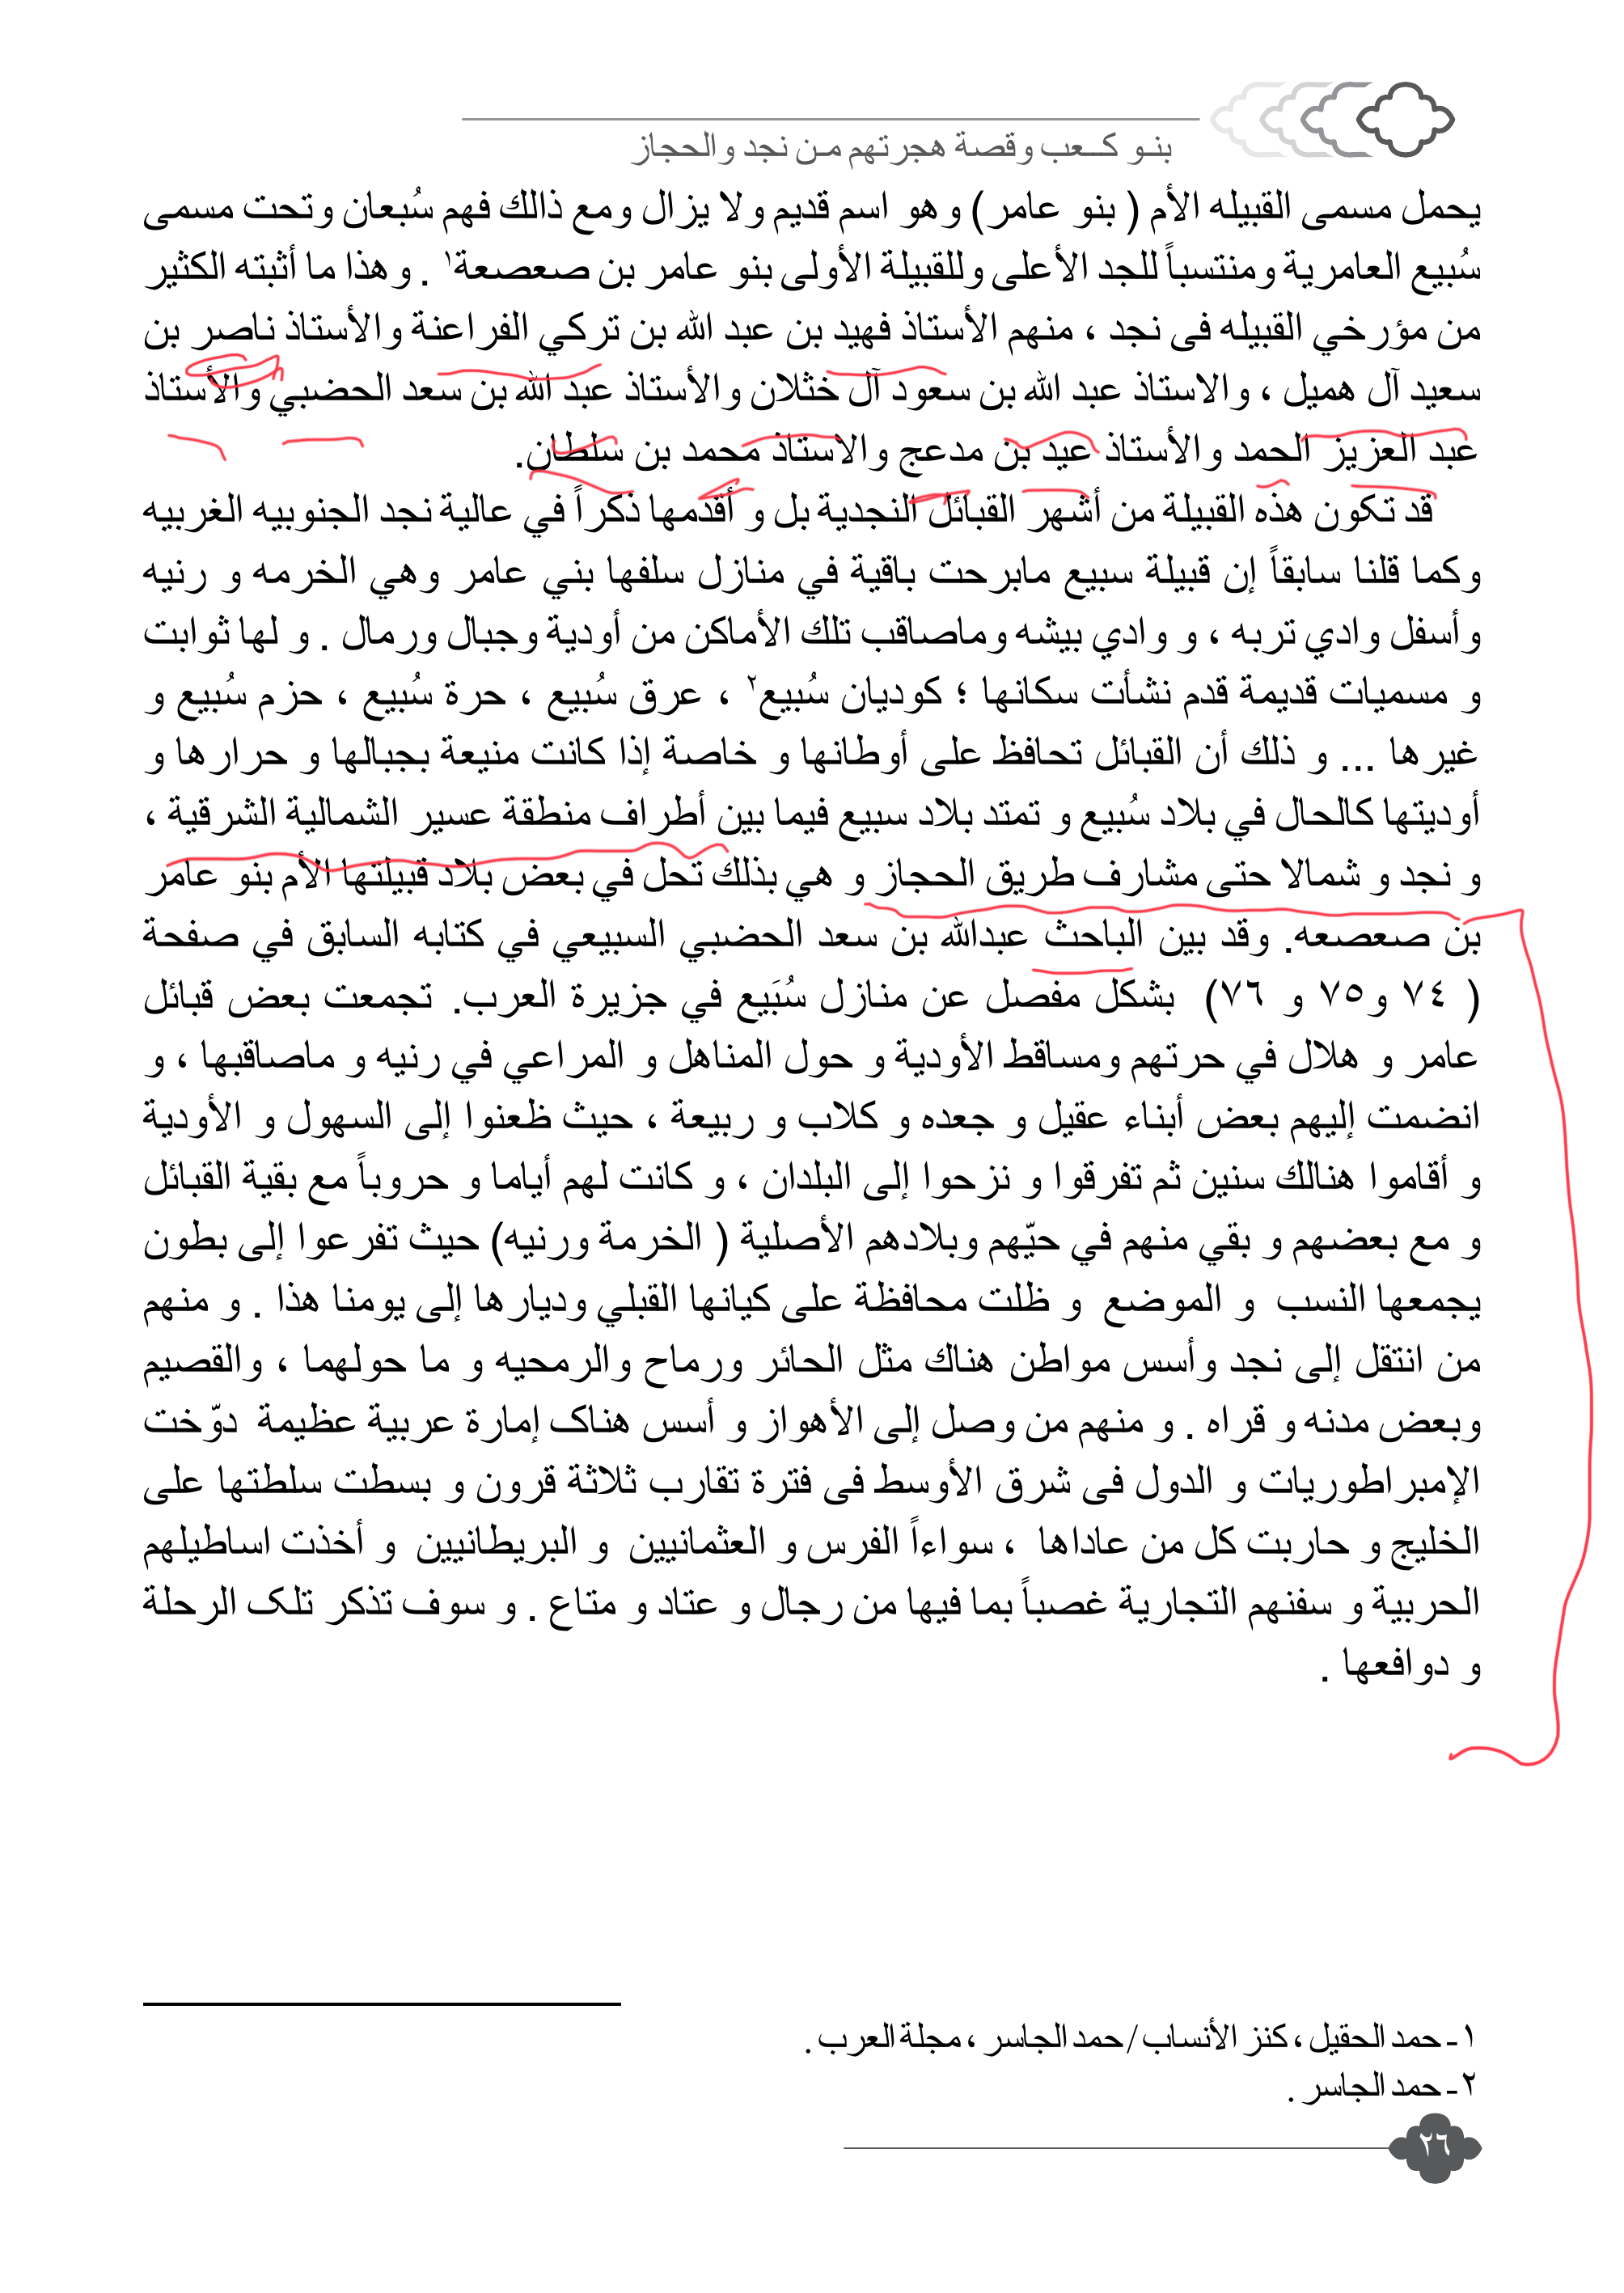 بنو كعب وقصة هجرتهم من نجد والحجاز
يحمل مسمى القبيله الأم ( بنو عامر) وهو اسم قديم ولا يزال ومع ذالك فهم سُبعان وتحت مسمى
سُبيع العامرية ومنتسباً للجد الأعلى وللقبيلة الأولى بنو عامر بن صعصعة١ . وهذا ما أثبته الكثير
من مؤرخي القبيله فى نجد ، منهم الأستاذ فهيد بن عبد الله بن تركي الفراعنة والأستاذ ناصر بن
سعيد آل هميل ، والاستاذ عبد الله بن سعود آل خثلان والأستاذ عبد الله بن سعد الحضبي والأستاذ
عبد العزيز الحمد والأستاذ عيد بن مدعج والاستاذ محمد بن سلطان.
قد تكون هذه القبيلة من أشهر القبائل النجدية بل و أقدمها ذكراً في عالية نجد الجنوبيه الغربيه
وكما قلنا سابقاً إن قبيلة سبيع مابرحت باقية في منازل سلفها بني عامر وهي الخرمه و رنيه
وأسفل وادي تربه ، و وادي بيشه وماصاقب تلك الأماكن من أودية وجبال ورمال . و لها ثوابت
و مسميات قديمة قدم نشأت سكانها ؛ كوديان سُبيع٢ ، عرق سُبيع ، حرة سُبيع ، حزم سُبيع و
غيرها ... و ذلك أن القبائل تحافظ على أوطانها و خاصة إذا كانت منيعة بجبالها و حرارها و
أوديتها كالحال في بلاد سُبيع و تمتد بلاد سبيع فيما بين أطراف منطقة عسير الشمالية الشرقية ،
و نجد و شمالا حتى مشارف طريق الحجاز و هي بذلك تحل في بعض بلاد قبيلتها الأم بنو عامر
بن صعصعه. وقد بين الباحث عبدالله بن سعد الحضبي السبيعي في كتابه السابق في صفحة
( ٧٤ و٧٥ و ٧٦) بشكل مفصل عن منازل سُبَيع في جزيرة العرب. تجمعت بعض قبائل
عامر و هلال في حرتهم ومساقط الأودية و حول المناهل و المراعي في رنيه و ماصاقبها ، و
انضمت إليهم بعض أبناء عقيل و جعده و كلاب و ربيعة ، حيث ظعنوا إلى السهول و الأودية
و أقاموا هنالك سنين ثم تفرقوا و نزحوا إلى البلدان ، و كانت لهم أياما و حروباً مع بقية القبائل
و مع بعضهم و بقي منهم في حيّهم وبلادهم الأصلية ( الخرمة ورنيه) حيث تفرعوا إلى بطون
يجمعها النسب و الموضع و ظلت محافظة على كيانها القبلي وديارها إلى يومنا هذا . و منهم
من انتقل إلى نجد وأسس مواطن هناك مثل الحائر ورماح والرمحيه و ما حولهما ، والقصيم
وبعض مدنه و قراه . و منهم من وصل إلى الأهواز و أسس هناک إمارة عربية عظيمة دوّخت
الإمبراطوريات و الدول فى شرق الأوسط فى فترة تقارب ثلاثة قرون و بسطت سلطتها على
الخليج و حاربت كل من عاداها ، سواءاً الفرس و العثمانيين و البريطانيين و أخذت اساطيلهم
الحربية و سفنهم التجارية غصباً بما فيها من رجال و عتاد و متاع . و سوف تذكر تلک الرحلة
و دوافعها .
١- حمد الحقيل ، كنز الأنساب / حمد الجاسر ، مجلة العرب .
٢- حمد الجاسر .
٢٦